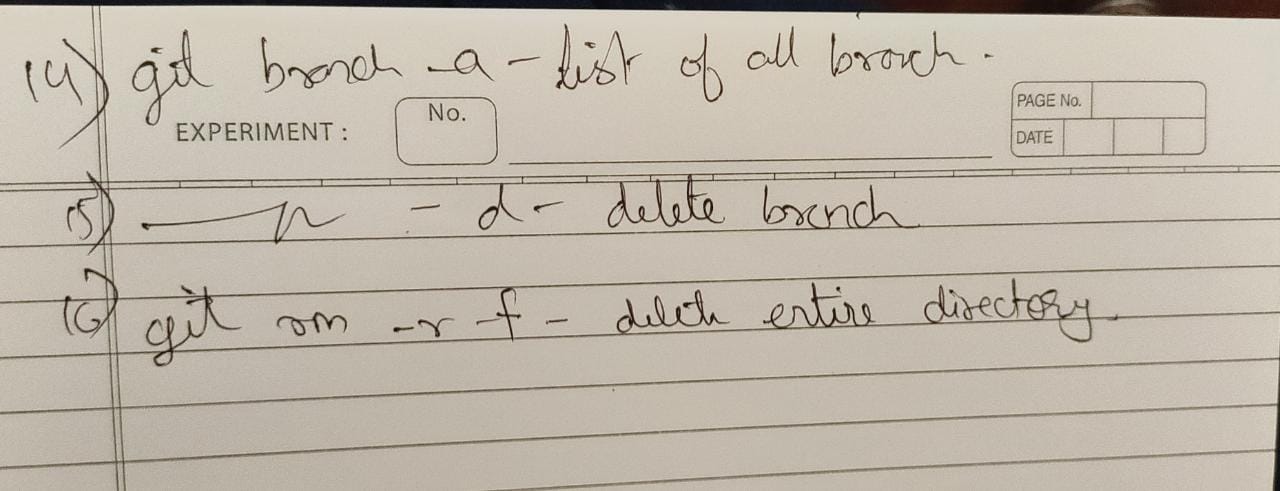 14) git branch -a - list of all branch.
EXPERIMENT : No.
PAGE No.
DATE
15) —〃— - d - delete branch
16) git rm -r -f - delete entire directory.